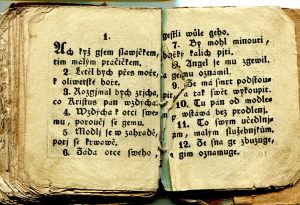 1.
Ach kyž gsem slawičkem,
tim malým ptačičkem.
2. Letěl bych přes moře,
k oliwetské hoře.
3. Rozgjmal bych zticha,
co Kristus pan wzdycha.
4. Wzdycha k otci swe-
mu, porouči se gemu.
5. Modlj se w zahradě,
potj se krwawě.
6. Žada otce sweho,
gestli wůle geho.
7. By mohl minouti,
hořký kalich pjti.
8. Angel se mu zgewil,
a gemu oznámil.
9. Že má smrt podstou-
piti, a tak swět wykoupit.
10. Tu pán od modlet-
by, wstáwá bez prodlenj.
11. To swým učedlnj-
kům, malým služebnjkům.
12. Že sna ge zbuzuge,
gim oznamuge.